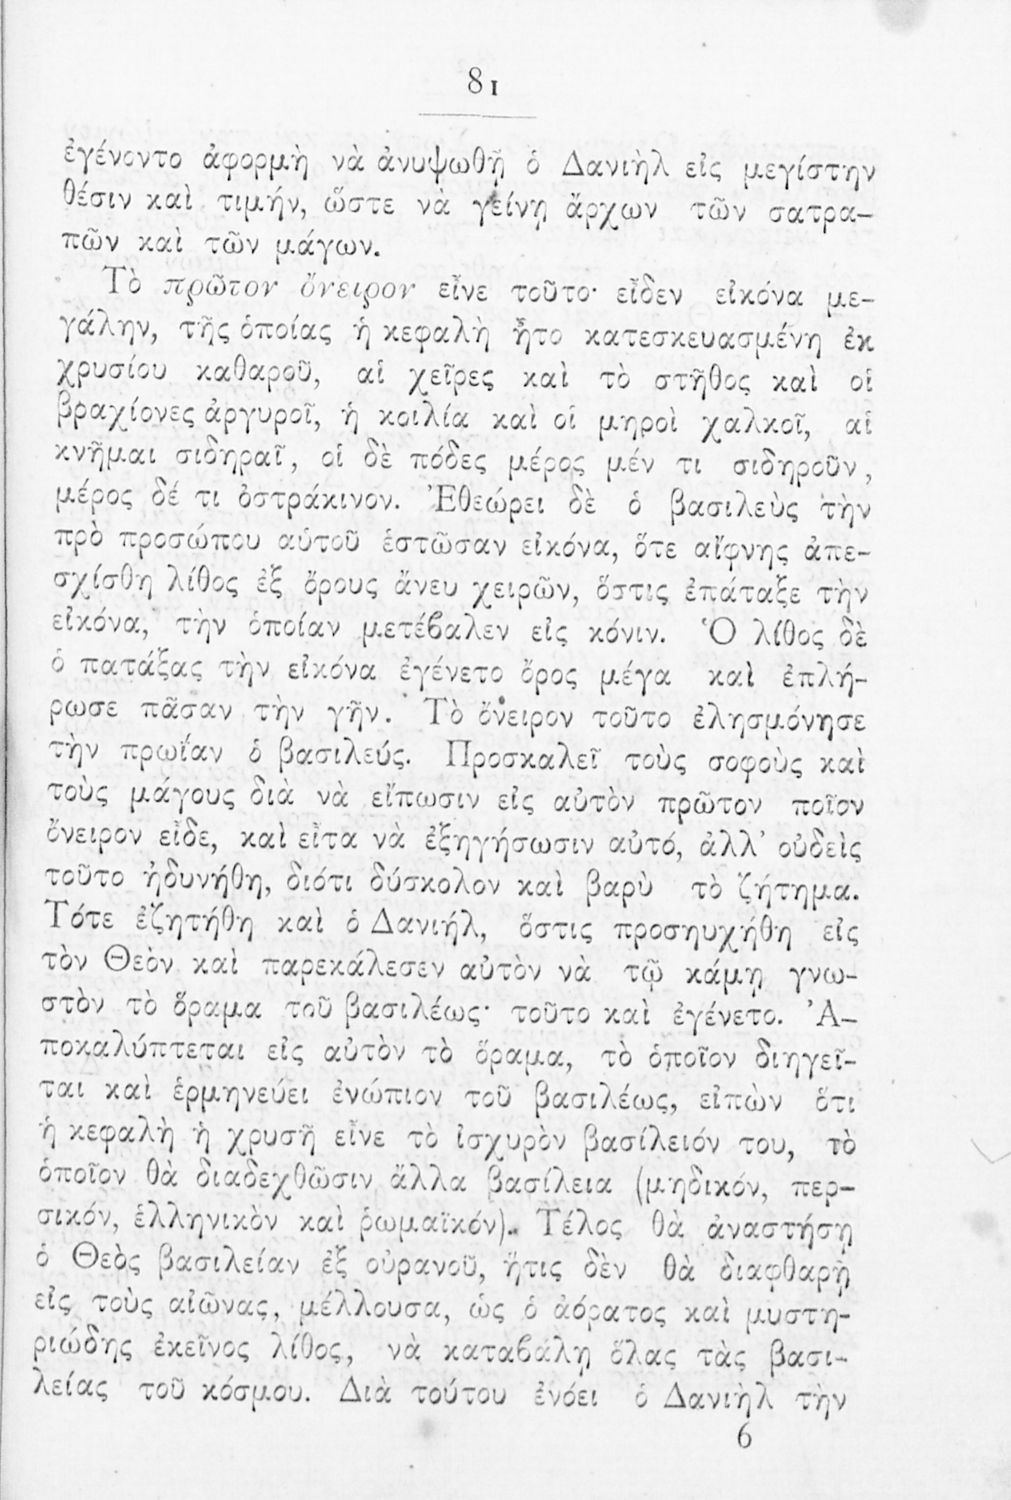 81
ἐγένοντο ἀφορμὴ νὰ ἀνυψωθῇ ὁ Δανιὴλ εἰς μεγίστην
θέσιν καὶ τιμήν, ὥστε νὰ γείνῃ ἄρχων τῶν σατρα-
πῶν καὶ τῶν μάγων.
Τὸ πρῶτον ὄνειρον εἶνε τοῦτο· εἶδεν εἰκόνα με-
γάλην, τῆς ὁποίας ἡ κεφαλὴ ἦτο κατεσκευασμένη ἐκ
χρυσίου καθαροῦ, αἱ χεῖρες καὶ τὸ στῆθος καὶ οἱ
βραχίονες ἀργυροῖ, ἡ κοιλία καὶ οἱ μηροὶ χαλκοῖ, αἱ
κνῆμαι σιδηραῖ, οἱ δὲ πόδες μέρος μέν τι σιδηροῦν,
μέρος δέ τι ὀστράκινον. Ἐθεώρει δὲ ὁ βασιλεὺς τὴν
πρὸ προσώπου αὑτοῦ ἑστῶσαν εἰκόνα, ὅτε αἴφνης ἀπε-
σχίσθη λίθος ἐξ ὄρους ἄνευ χειρῶν, ὅστις ἐπάταξε τὴν
εἰκόνα, τὴν ὁποίαν μετέβαλεν εἰς κόνιν. Ὁ λίθος δὲ
ὁ πατάξας τὴν εἰκόνα ἐγένετο ὄρος μέγα καὶ ἐπλή-
ρωσε πᾶσαν τὴν γῆν. Τὸ ὄνειρον τοῦτο ἐλησμόνησε
τὴν πρωΐαν ὁ βασιλεύς. Προσκαλεῖ τοὺς σοφοὺς καὶ
τοὺς μάγους διὰ νὰ εἴπωσιν εἰς αὐτὸν πρῶτον ποῖον
ὄνειρον εἶδε, καὶ εἶτα νὰ ἐξηγήσωσιν αὐτό, ἀλλ' οὐδεὶς
τοῦτο ἠδυνήθη, διότι δύσκολον καὶ βαρὺ τὸ ζήτημα.
Τότε ἐζητήθη καὶ ὁ Δανιήλ, ὅστις προσηυχήθη εἰς
τὸν Θεὸν καὶ παρεκάλεσεν αὐτὸν νὰ τῷ κάμῃ γνω-
στὸν τὸ ὅραμα τοῦ βασιλέως· τοῦτο καὶ ἐγένετο. Ἀ-
ποκαλύπτεται εἰς αὐτὸν τὸ ὅραμα, τὸ ὁποῖον διηγεῖ-
ται καὶ ἑρμηνεύει ἐνώπιον τοῦ βασιλέως, εἰπὼν ὅτι
ἡ κεφαλὴ ἡ χρυσῆ εἶνε τὸ ἰσχυρὸν βασίλειόν του, τὸ
ὁποῖον θὰ διαδεχθῶσιν ἄλλα βασίλεια (μηδικόν, περ-
σικόν, ἑλληνικὸν καὶ ῥωμαϊκόν). Τέλος θὰ ἀναστήσῃ
ὁ Θεὸς βασιλείαν ἐξ οὐρανοῦ, ἥτις δὲν θὰ διαφθαρῇ
εἰς τοὺς αἰῶνας, μέλλουσα, ὡς ὁ ἀόρατος καὶ μυστη-
ριώδης ἐκεῖνος λίθος, νὰ καταβάλῃ ὅλας τὰς βασι-
λείας τοῦ κόσμου. Διὰ τούτου ἐνόει ὁ Δανιὴλ τὴν
6